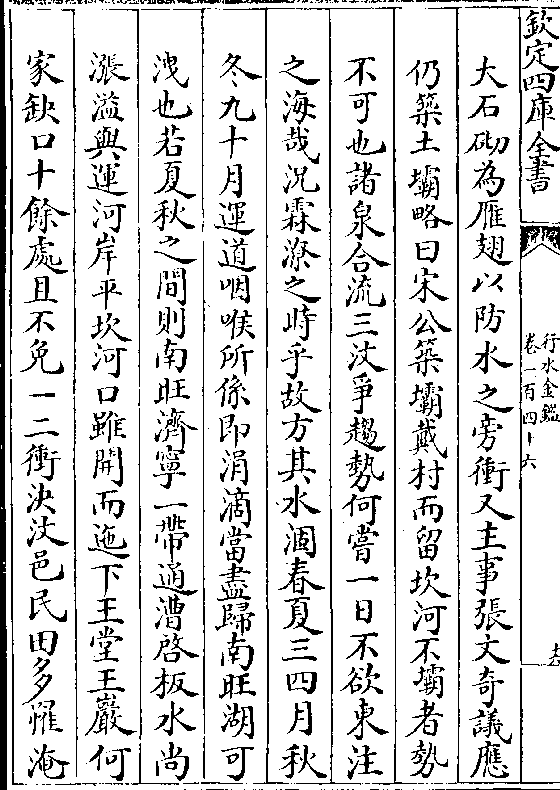 欽定四庫全書
行水金鑑
卷一百四十六
大石砌為雁翅以防水之旁衝又主事張文奇議應
仍築土壩略曰宋公築壩戴村而留坎河不壩者勢
不可也諸泉合流三汶爭趨勢何嘗一日不欲東注
之海哉況霖潦之時乎故方其水涸春夏三四月秋
冬九十月運道咽喉所係即涓滴當盡歸南旺湖可
洩也若夏秋之間則南旺濟寧一帶通漕啓板水尚
漲溢與運河岸平坎河口雖開而迤下王堂王巖何
家缺口十餘處且不免一二衝決汶邑民田多罹淹